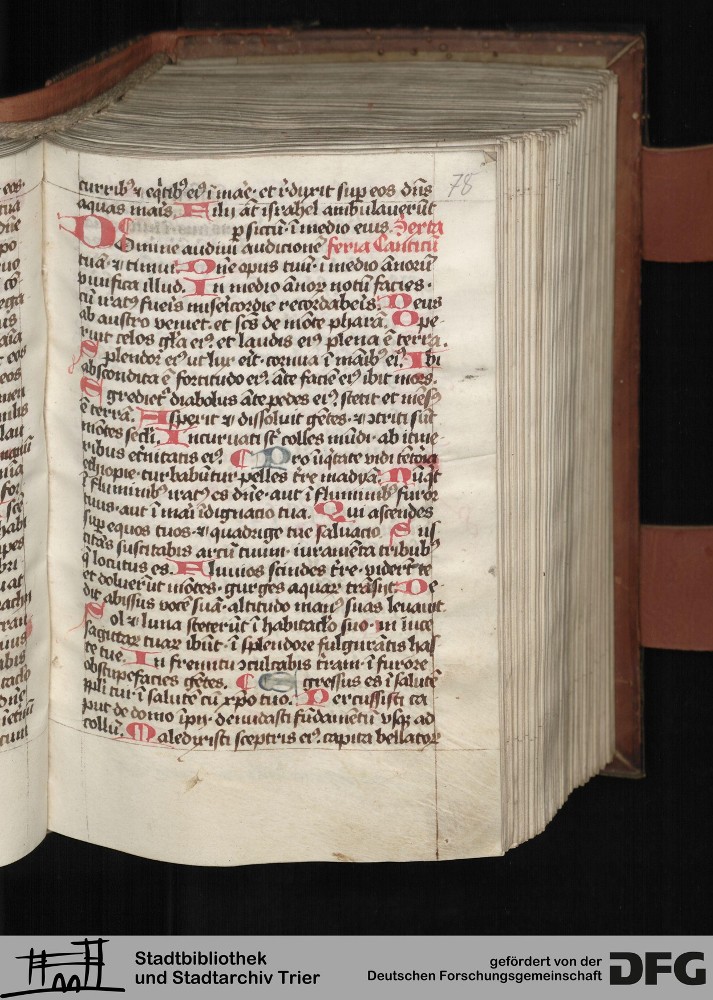 78
curribꝰ ⁊ eqͥtibꝰ eiꝰ ī mare· et rͥduxit suꝑ eos dn̄s
aquas maris. Filii aūt israhel ambulauerūt
ꝑ siccū· ī medio eius. Sexta
Domine audiui audicionē feria Canticū
tuā· ⁊ timui. Dn̄e opus tuū· ī medio ānorū
viuifica illud. In medio ānoꝝ notū facies·
cū iratꝰ fueris misericordie recordaberis. Deus
ab austro veniet· et scs de mōte pharā. Ope-
ruit celos gl̄a eiꝰ· et laudis eiꝰ plena ē terra.
Splendor eiꝰ ut lux erit· cornua ī manibꝰ eiꝰ. Ibi
abscondita ē fortitudo eiꝰ· āte faciē eiꝰ ibit mors.
Egrediet᷑ diabolus āte pedes eiꝰ· stetit et mēsꝰ
ē terrā. Asperit ⁊ dissoluit gētes· ⁊ ꝯtriti sūt
mōtes secl̄i. Incuruati st̄ colles mūdi· ab itine-
ribus et̄nitatis eiꝰ. Pro īiq̄tate vidi tētoria
ethiopie· turbabūtur pelles tr̄e madyā. Nūqͥt
ī fluminibꝰ iratꝰ es dn̄e· aut ī fluminibꝰ furor
tuus· aut ī mari īdignacio tua. Qui ascendes
suꝑ equos tuos· ⁊ quadrige tue saluacio. Sus
citās suscitabis arcū tuum· iuramēta tribubꝰ
q̄ locutus es. Fluuios scindes tr̄e· viderūt te
et doluerūt mōtes· gurges aquaꝝ trāsiit. De
dit abissus vocē suā· altitudo manꝰ suas leuauit.
Sol ⁊ luna steterūt ī habitacl̄o suo· in luce
sagittaꝝ tuaꝝ ibūt· ī splendore fulgurātis has
te tue. In fremitu ꝯculcabis t̄ram· ī furore
obstupefacies gētes. Egressus es ī salutē
ppl̄i tui· ī salutē cū xp̄o tuo. Percussisti ca
put de domo īpij· denudasti fūdamētū vsqꝫ ad
collū. Maledixisti sceptris eiꝰ· capita bellatoꝝ
Stadtbibliothek
und Stadtarchiv Trier
gefördert von der
Deutschen Forschungsgemeinschaft
DFG